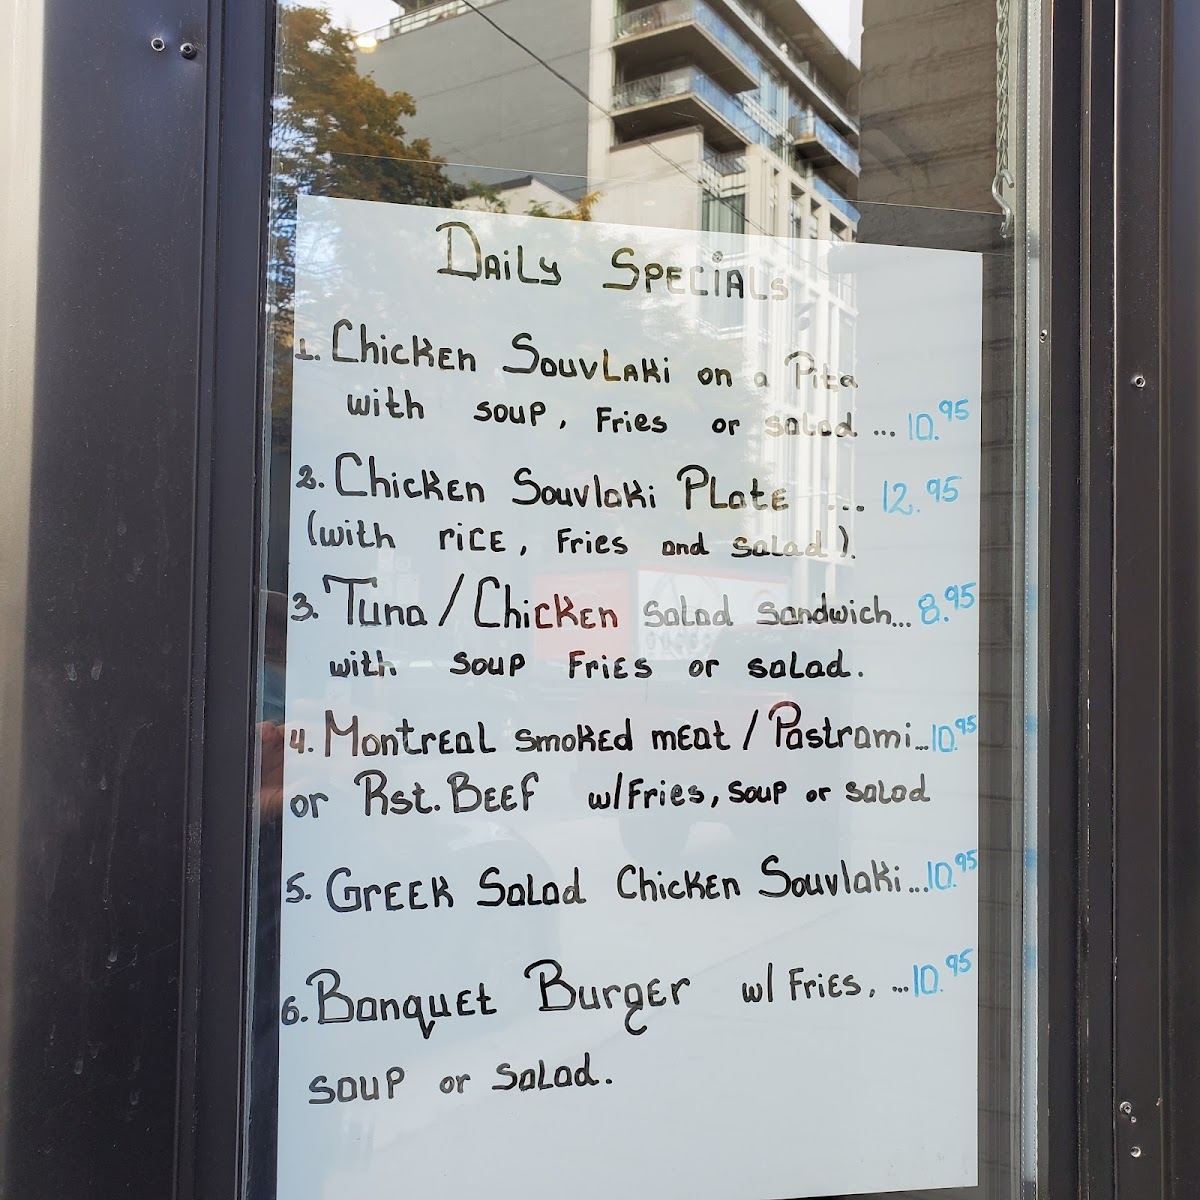 Daily Specials
1. Chicken Souvlaki on a Pita
with soup, Fries or salad ... 10.95
2. Chicken Souvlaki Plate ... 12.95
(with rice, Fries and salad).
3. Tuna / Chicken salad sandwich... 8.95
with soup Fries or salad.
4. Montreal smoked meat / Pastrami... 10.95
or Rst. Beef w/Fries, soup or salad
5. Greek Salad Chicken Souvlaki... 10.95
6. Banquet Burger w/ Fries, ... 10.95
soup or salad.